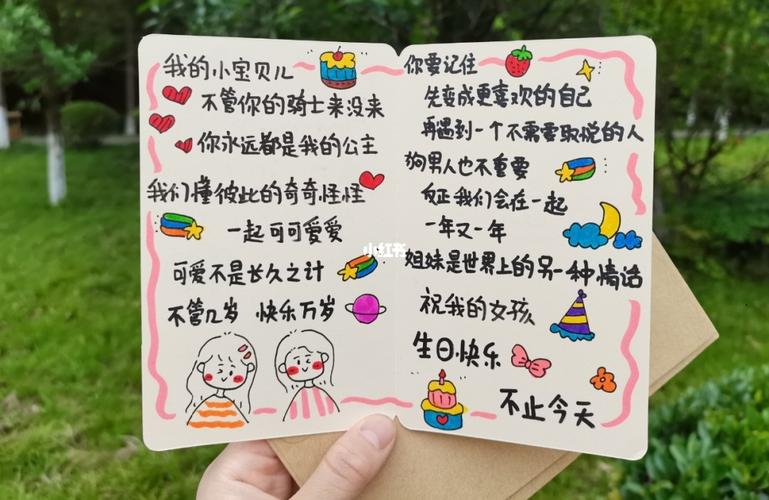 我的小宝贝儿
不管你的骑士来没来
你永远都是我的公主
我们懂彼此的奇奇怪怪
一起可可爱爱
可爱不是长久之计
不管几岁 快乐万岁
你要记住
先变成更喜欢的自己
再遇到一个不需要取悦的人
狗男人也不重要
反正我们会在一起
一年又一年
姐妹是世界上的另一种情话
祝我的女孩
生日快乐
不止今天
小红书